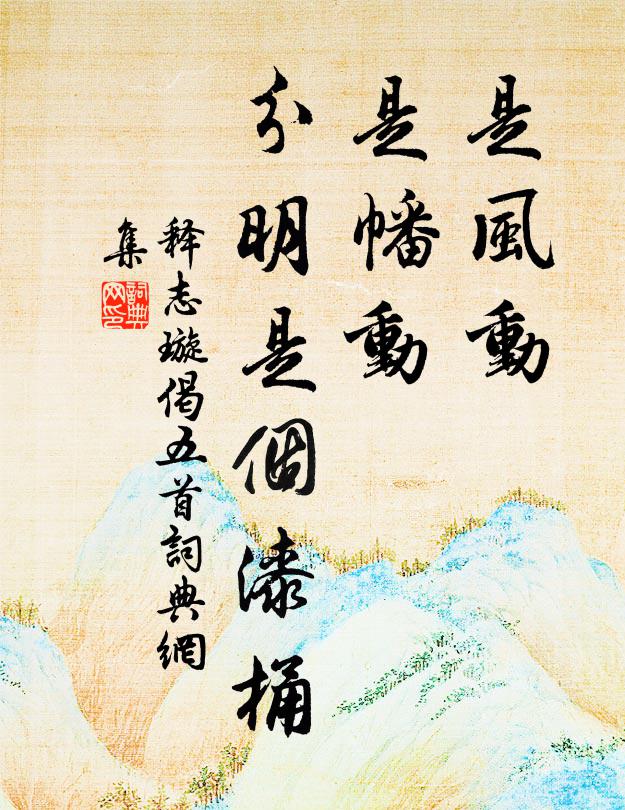 是風動
是幡動
分明是個漆桶
释志璇偈五首詞典網
集
詞典
网印